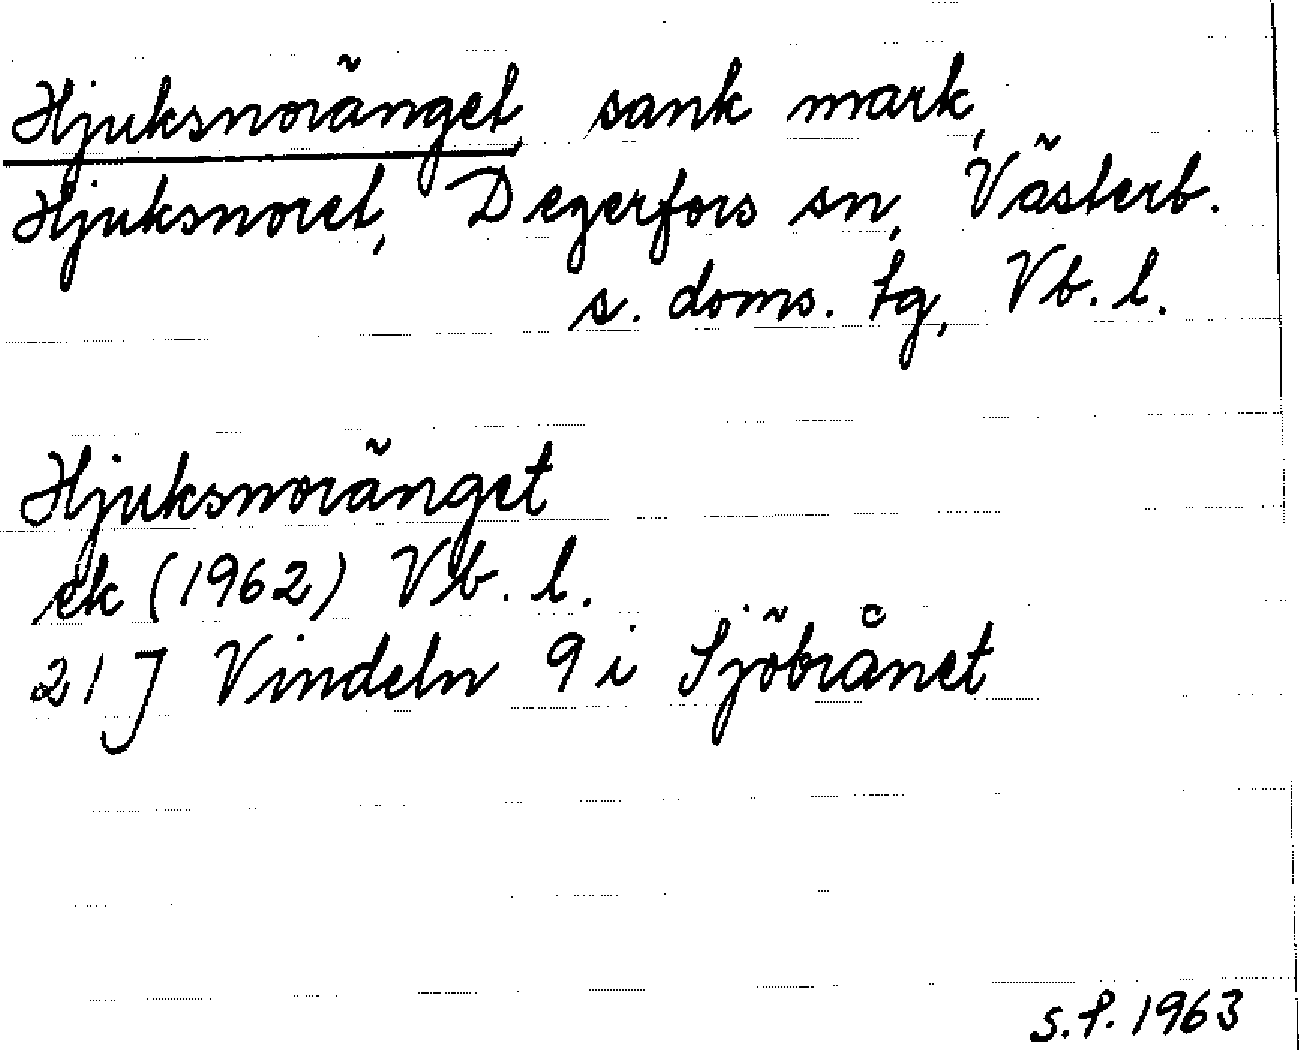 Hjuksnoränget, sank mark,
Hjuksnoret, Degerfors sn, Västerb.
s. doms. tg, Vb. l.
Hjuksnoränget
ek (1962) Vb. l.
21 J Vindeln 9 i Sjöbrånet
S.P. 1963